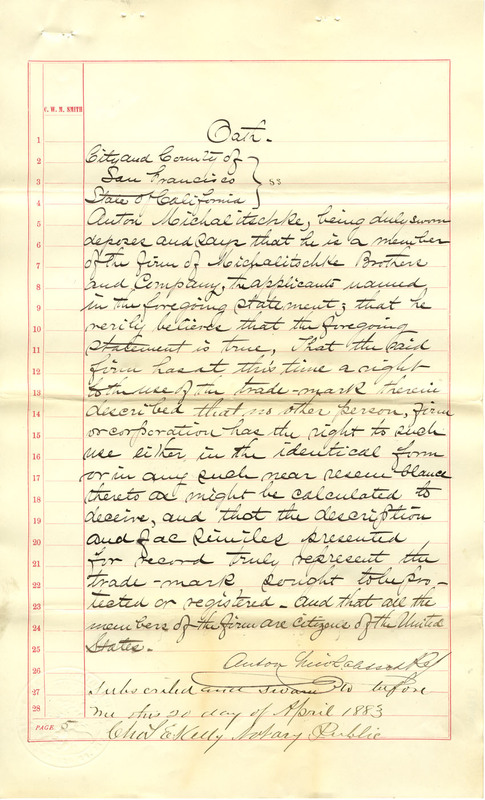 C. W. M. SMITH
Oath.
1
2 City and County of
3 San Francisco } ss
4 State of California
5 Anton Michalitschke, being duly sworn
6 deposes and says that he is a member
7 of the firm of Michalitschke Brothers
8 and Company, the applicants named
9 in the foregoing statement; that he
10 verily believes that the foregoing
11 statement is true, that the said
12 firm has at this time a right
13 to the use of the trade-mark therein
14 described that no other person, firm
15 or corporation has the right to such
16 use either in the identical form
17 or in any such near resemblance
18 thereto as might be calculated to
19 deceive, and that the description
20 and fac similes presented
21 for record truly represent the
22 trade-mark sought to be pro-
23 tected or registered. And that all the
24 members of the firm are citizens of the United
25 States.
26 Anton
27 Subscribed and sworn to before
28 me this 20 day of April 1883
PAGE 5 Chas E Kelly Notary Public